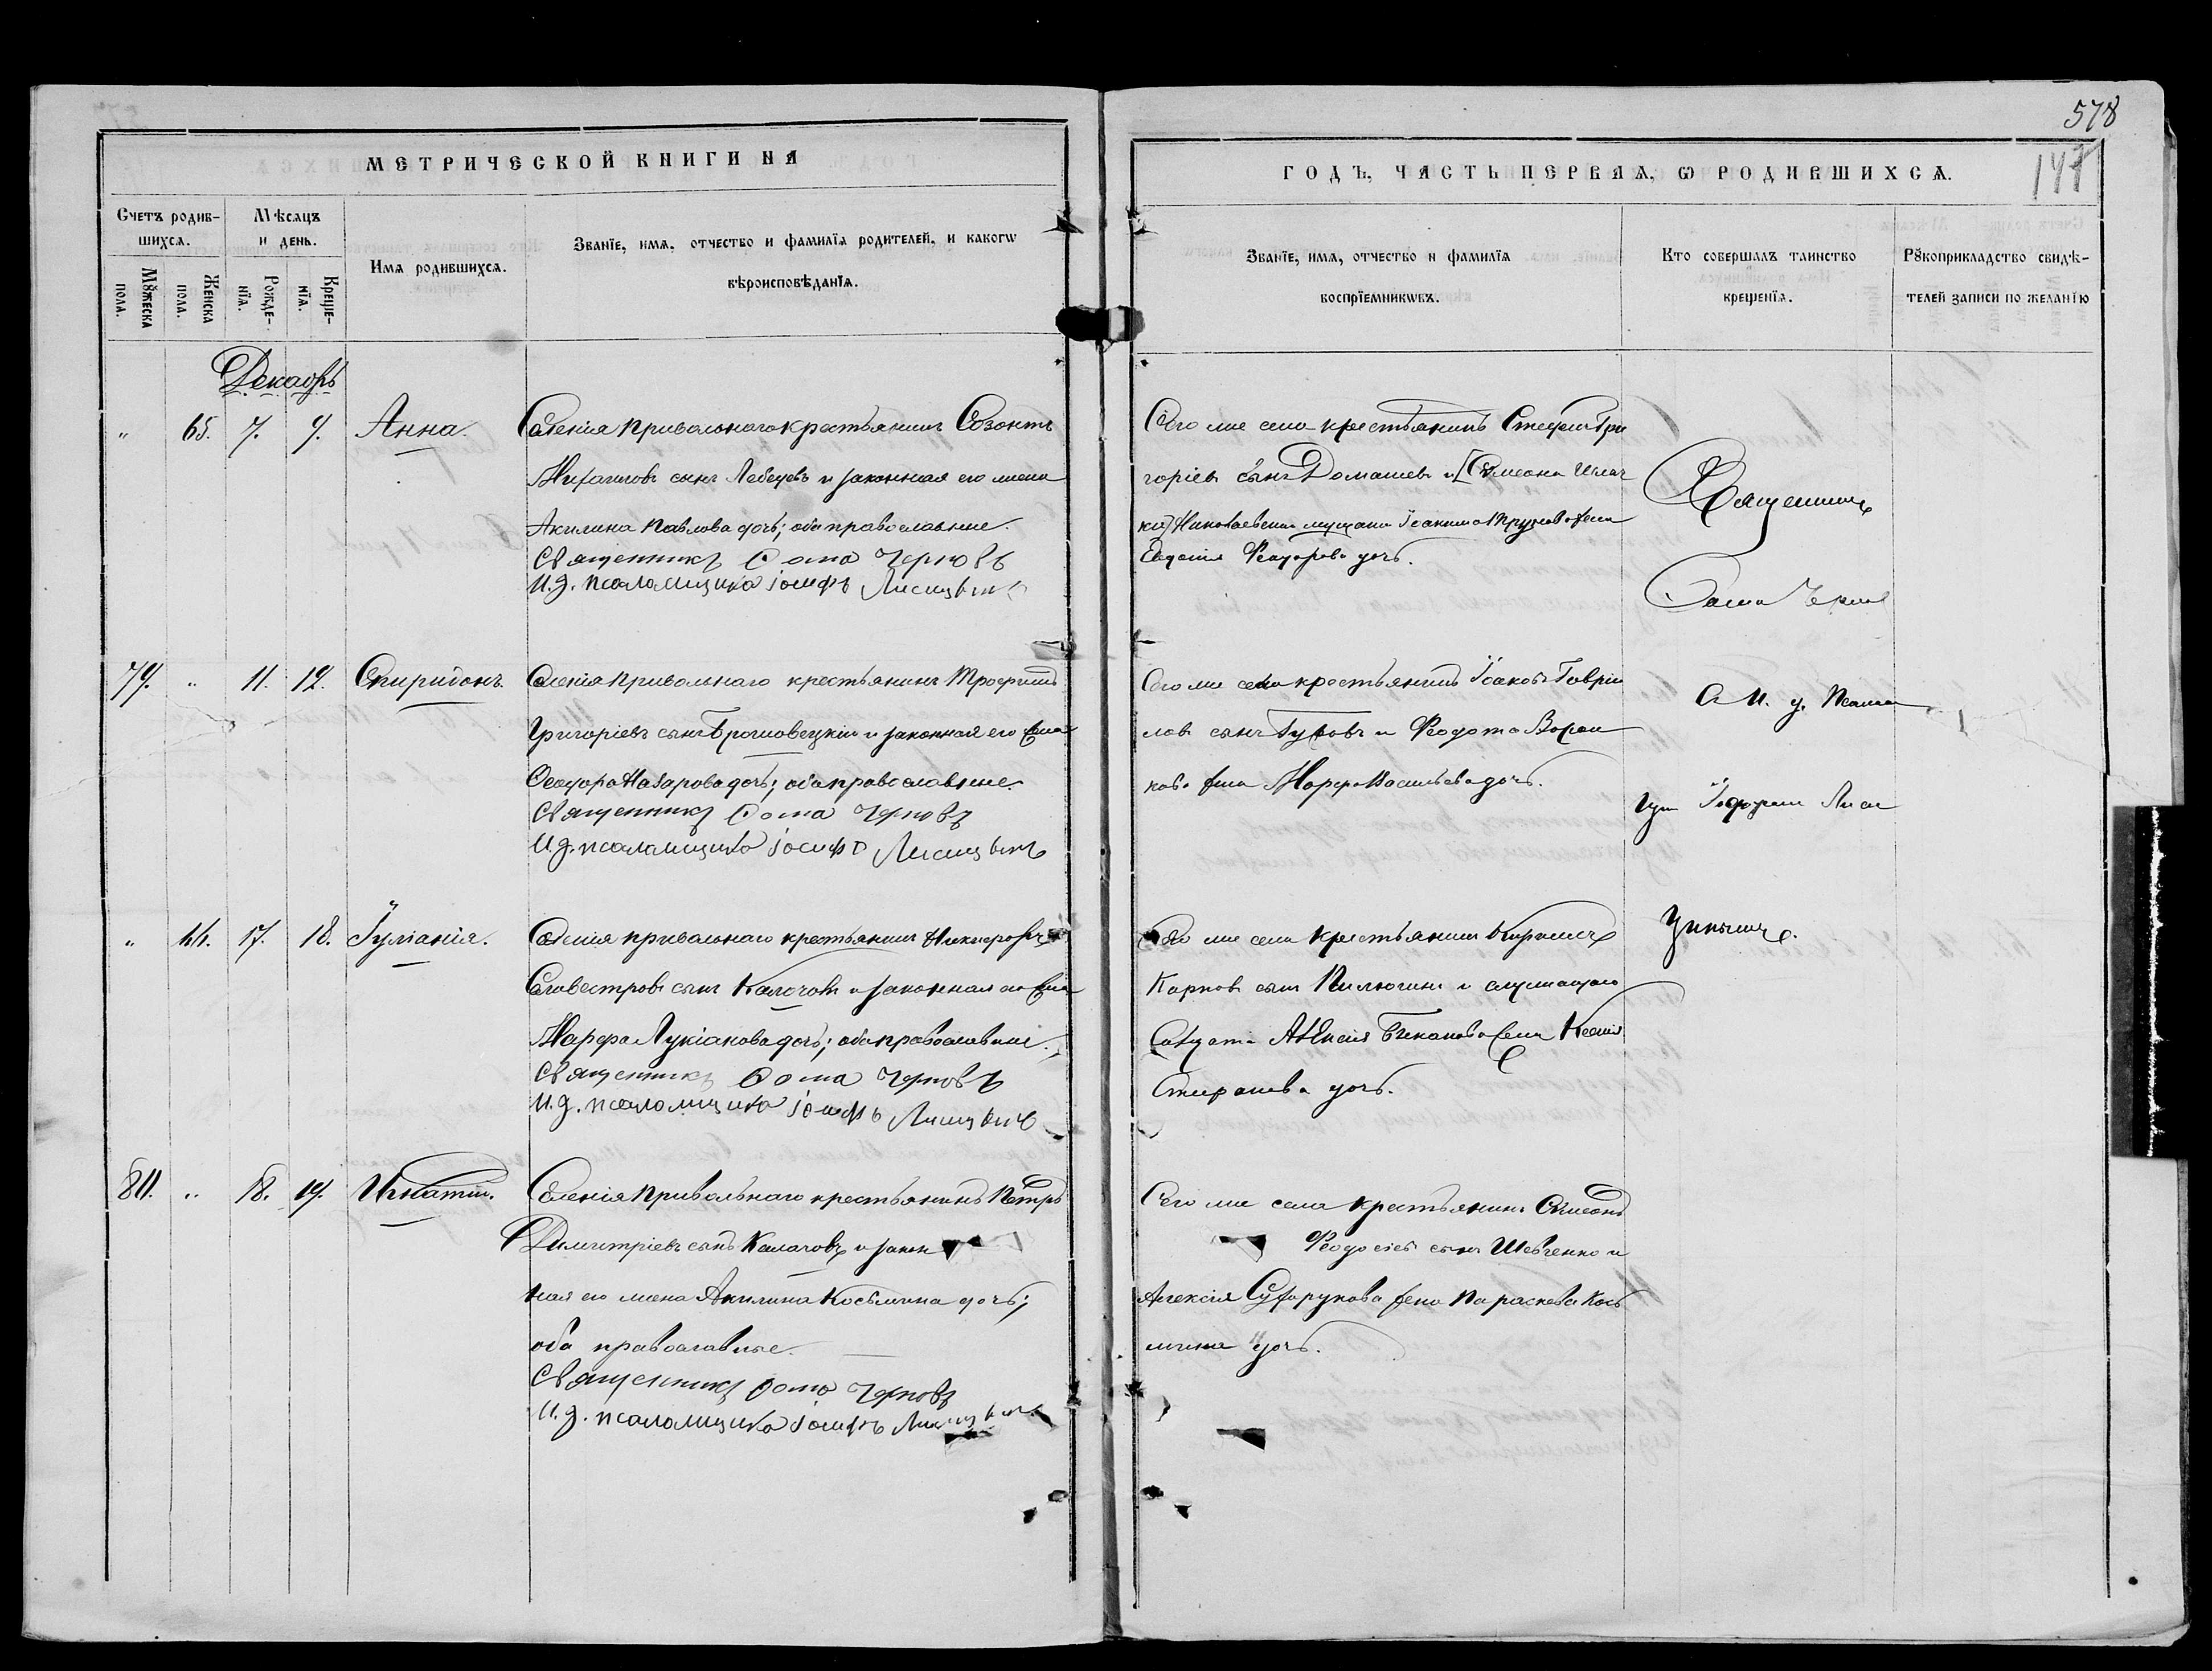 578
МЕТРИЧЕСКОЙ КНИГИ НА
ГОДЪ, ЧАСТЬ ПЕРВАЯ, Ѡ РОДИВШИХСѦ.
147
Счетъ родив-
шихсѧ.
Мѣсѧцъ
и день.
Мꙋжеска
пола.
Женска
пола.
Рожде-
нїѧ.
Креще-
нїѧ.
Имѧ родившихсѧ.
Званїе, имѧ, отчество и фамилїѧ родителей, и какогѡ
вѣроисповѣданїѧ.
Званїе, имѧ, отчество и фамилїѧ
воспрїемникѡвъ.
Кто совершалъ таинство
крещенїѧ.
Рꙋкоприкладство свидѣ-
телей записи по желанїю
Декабрь
" 65. 7. 9. Анна.
Селенія Привольнаго крестьянинъ Созонтъ
сынъ Лебедевъ и законная его жена
Акилина Павлова дочь; оба православные.
Священникъ Фома Черновъ
И.д. псаломщика Іосифъ Лисицынъ
Сего же села крестьянинъ Стефанъ Гри
горіевъ сынъ Домашевъ и
Николаевскаго мещанина Іоанима жена
Евдокія Феодорова дочь.
Священникъ
Фома Черновъ
79. " 11. 12. Спиридонъ.
Селенія Привольнаго крестьянинъ Трофимъ
Григоріевъ сынъ и законная его жена
Феодора Назарова дочь; оба православные.
Священникъ Фома Черновъ
И.д. псаломщика Іосифъ Лисицынъ
Сего же села крестьянинъ Іаковъ Гаврі
ловъ сынъ Гузовъ и Феодота Ворон
кова жена Марфа Васильева дочь.
И. д. Псалом
Іосифъ Лиси
цынъ.
" 66. 17. 18. Іуліанія.
Селенія Привольнаго крестьянинъ Никифоръ
Селивестровъ сынъ Калачовъ и законная его жена
Марфа Лукіанова дочь; оба православные.
Священникъ Фома Черновъ
И.д. псаломщика Іосифъ Лисицынъ
Сего же села крестьянинъ
Карповъ сынъ Пилюгинъ и служащаго
солдата Алексія жена Ксенія
дочь.
80. " 18. 19. Игнатій.
Селенія Привольнаго крестьянинъ Петръ
Димитріевъ сынъ Калачовъ и закон
ная его жена Акилина Косьмина дочь;
оба православные.
Священникъ Фома Черновъ
И.д. псаломщика Іосифъ Лисицынъ
Сего же села крестьянинъ Симеонъ
Феодосіевъ сынъ Шевченко и
Алексія Сухорукова жена Параскева Кось
мина дочь.